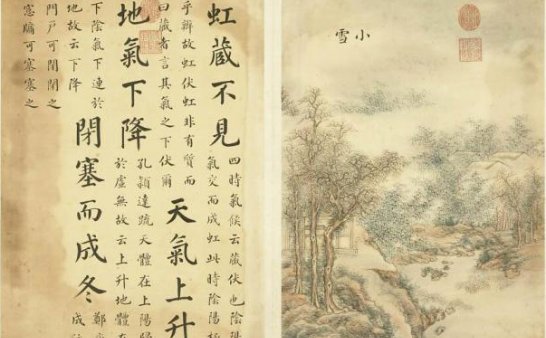 小雪
虹藏不見
四時氣候云藏伏也陰陽
氣交而成虹此時陰陽極
乎辨故虹伏虹非有質而
曰藏者言其氣之下伏爾
天氣上升
地氣下降
孔穎達疏天體在上陽歸
於虛無故云上升地體在
下陰氣下連於
地故云下降
閉塞而成冬
鄭
成
門戶可閉閉之
窓牖可塞塞之